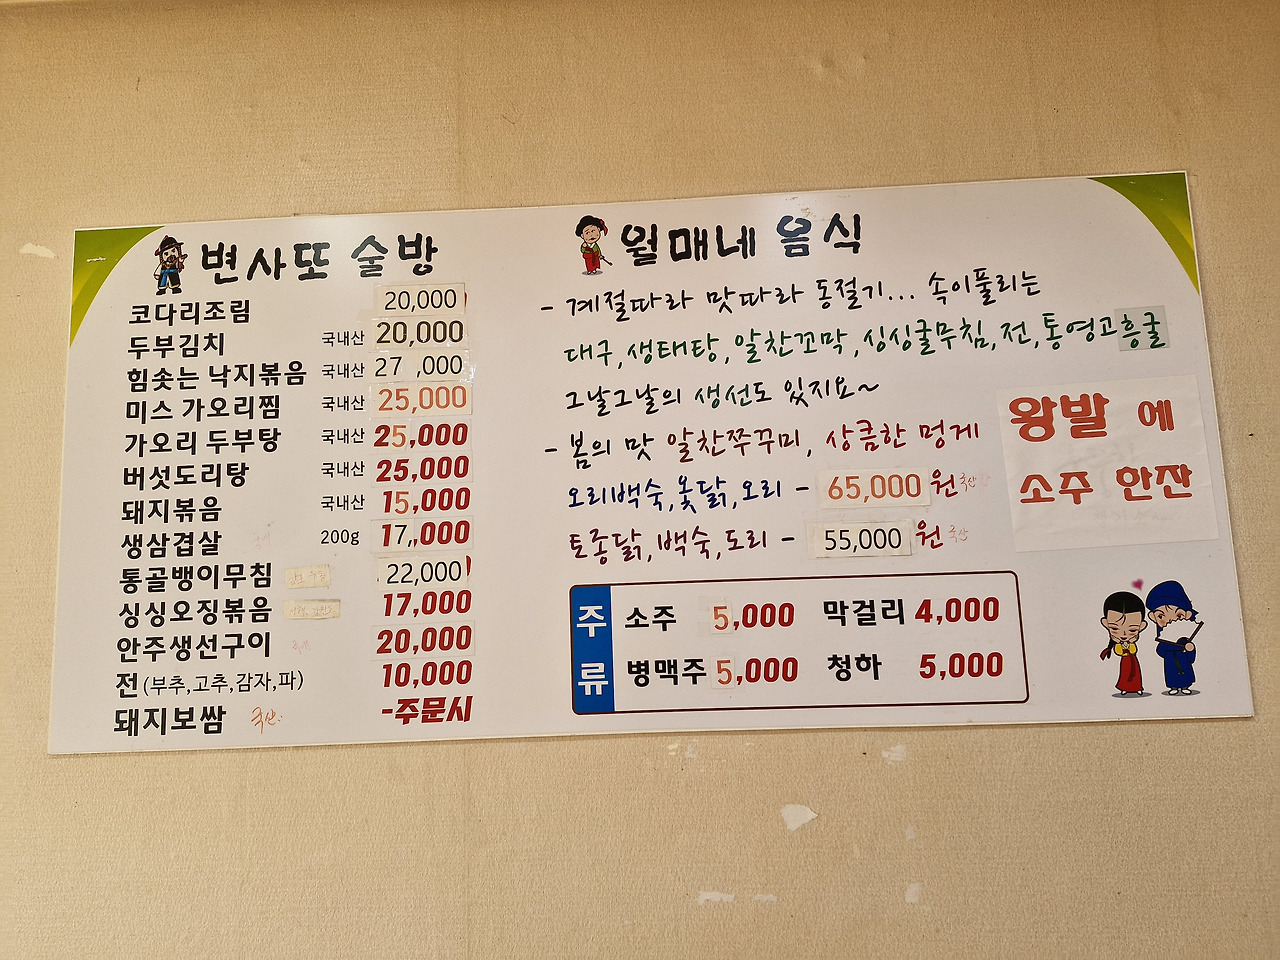 변사또 술방
코다리조림 20,000
두부김치 국내산 20,000
힘솟는 낙지볶음 국내산 27,000
미스 가오리찜 국내산 25,000
가오리 두부탕 국내산 25,000
버섯도리탕 국내산 25,000
돼지볶음 국내산 15,000
생삼겹살 200g 17,000
통골뱅이무침 22,000
싱싱오징볶음 17,000
안주생선구이 20,000
전 (부추,고추,감자,파) 10,000
돼지보쌈 국산 -주문시
월매네 음식
- 계절따라 맛따라 동절기... 속이풀리는
대구,생태탕,알찬꼬막,싱싱굴무침,전,통영고흥굴
그날그날의 생선도 있지요~
- 봄의 맛 알찬쭈꾸미, 상큼한 멍게
오리백숙,옻닭,오리 - 65,000 원 국산
토종닭,백숙,도리 - 55,000 원 국산
왕발 에
소주 한잔
주류
소주 5,000 막걸리 4,000
병맥주 5,000 청하 5,000